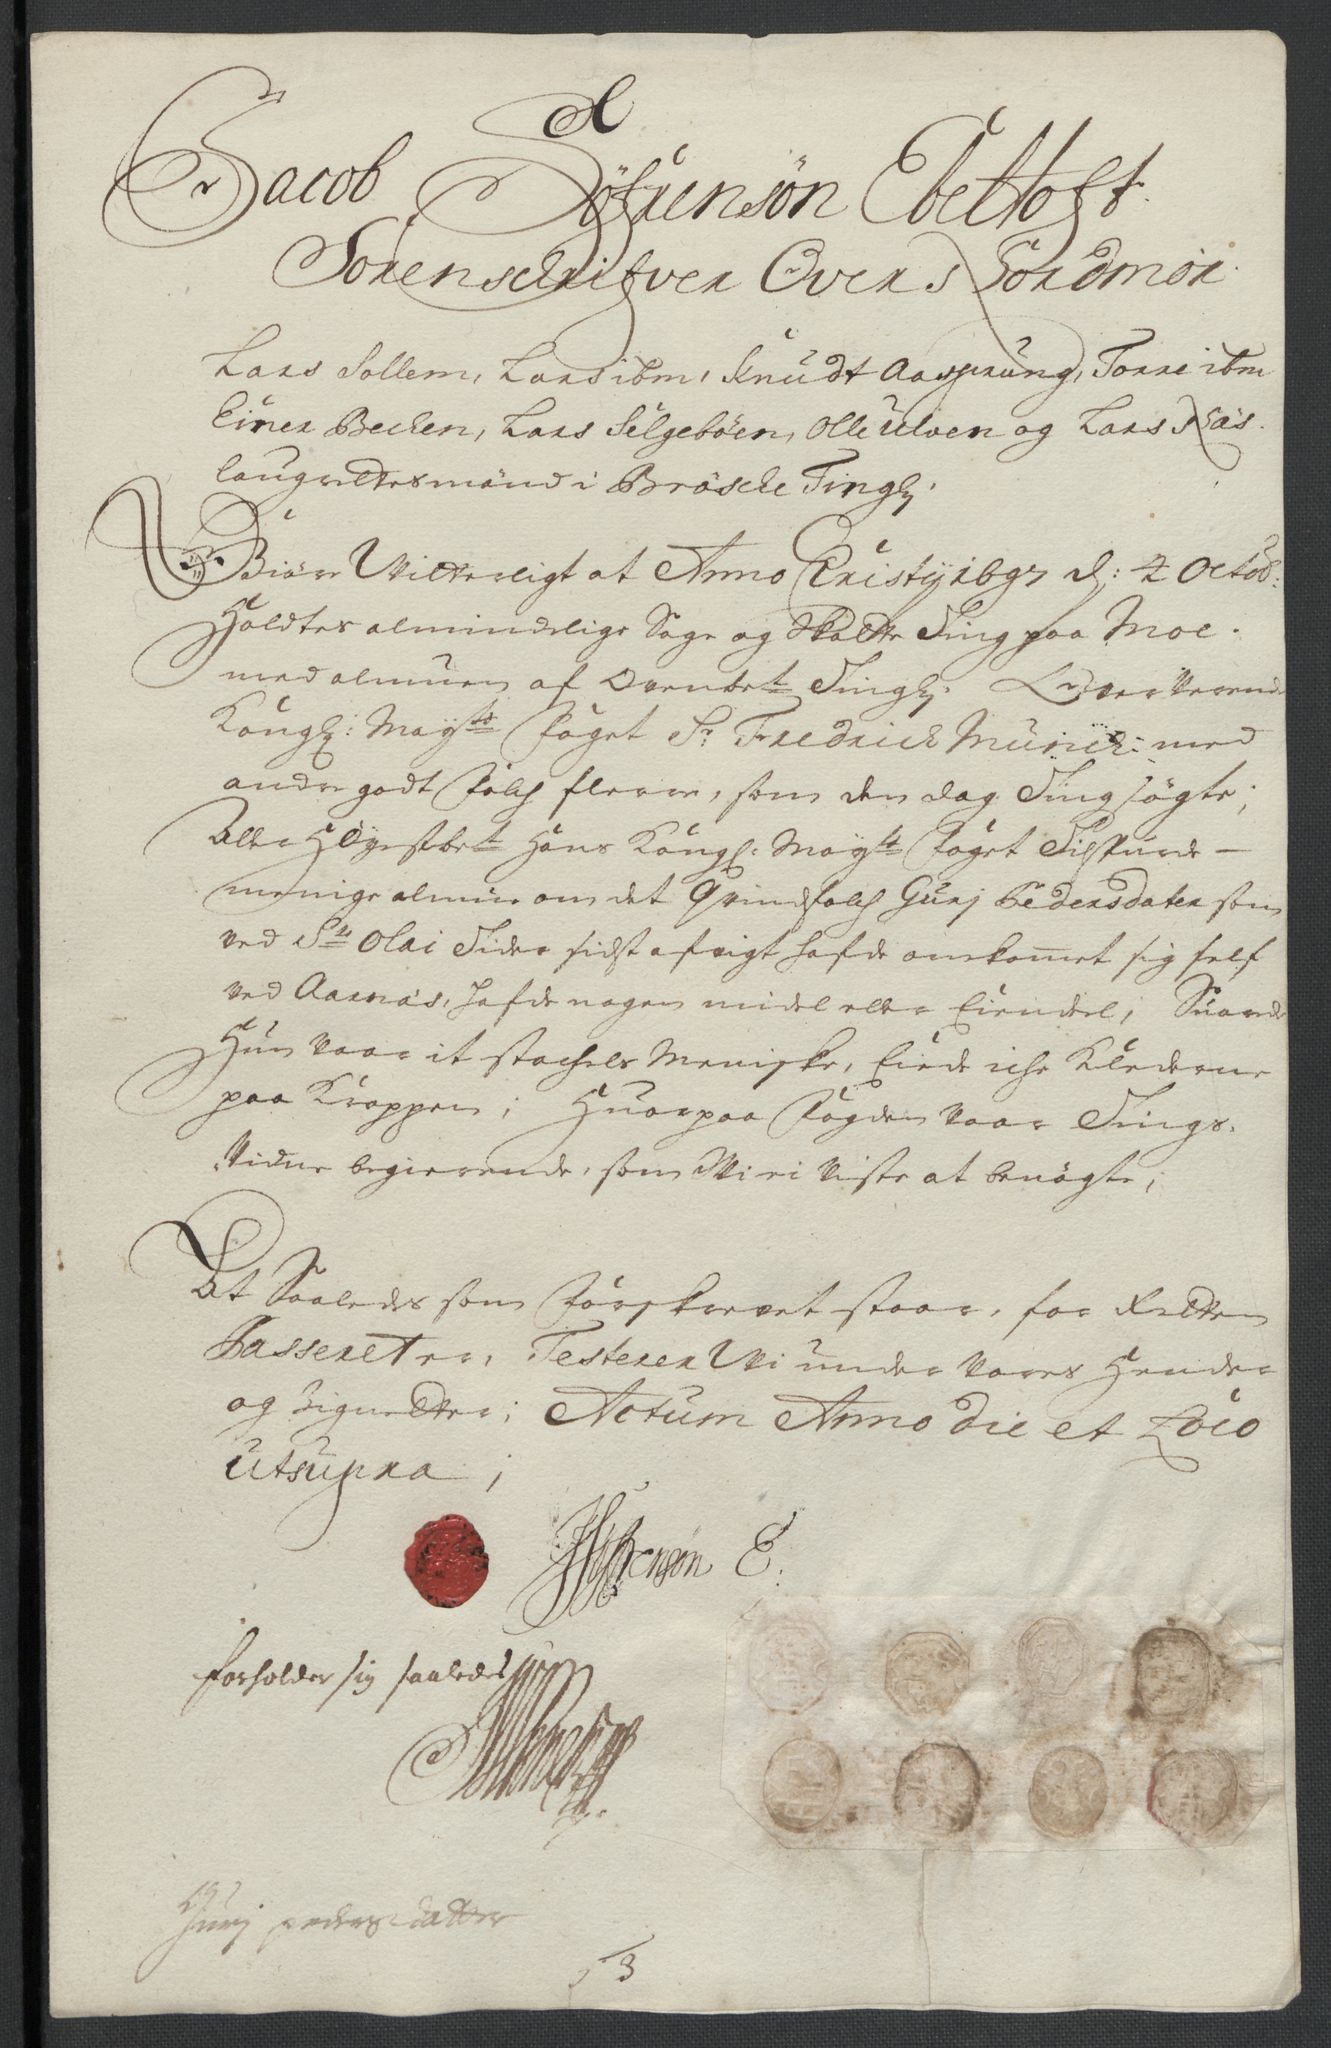 Jacob Söfrensön Ebeltoft
Sorenschrifver Over Sondmör
Lars Sollem, Lars ibm, Knudt Aasprung, Torre ibm
Einer Becken, Lars Selgeböen, Olle Ulven og Lars Næs
laugrettesmænd i Brösche Tingl:
Giöre Witterligt at Anno Christy 1697 d: 2 Octob:
Holdtes almindelige Sage og Skatte Ting paa Moe
med almuen af Ovenbete Tingl: Ofververende
Kongl: Mayts Foget Sr Fredrich Münch: med
andre godt Folch flerre, som den dag Ting søgte;
Hans Kongl: Mayts Foget Tilspurde
menige almue om det Qvindfolch Gurj Pedersdater som
ved Sti Olai Tider sidst afvigt hafde omkomet sig self
ved Aarnæs, hafde nogen midel eller Eiendel; Suarede
Hun vaar it stachels Meniske, Eiede iche Klederne
paa Kroppen; Huorpaa Fogden vaar Tings-
vidne begierende, som Wi ei viste at benægte;
At Saaledes som forskrevet staar, for Retten
Passeret er, Testerer Wi under vores Hender
og Signetter; Actum Anno die et Loco
utsupra;
JSöfrensön E:
forholder sig saaledes
Gurj peders datter
53